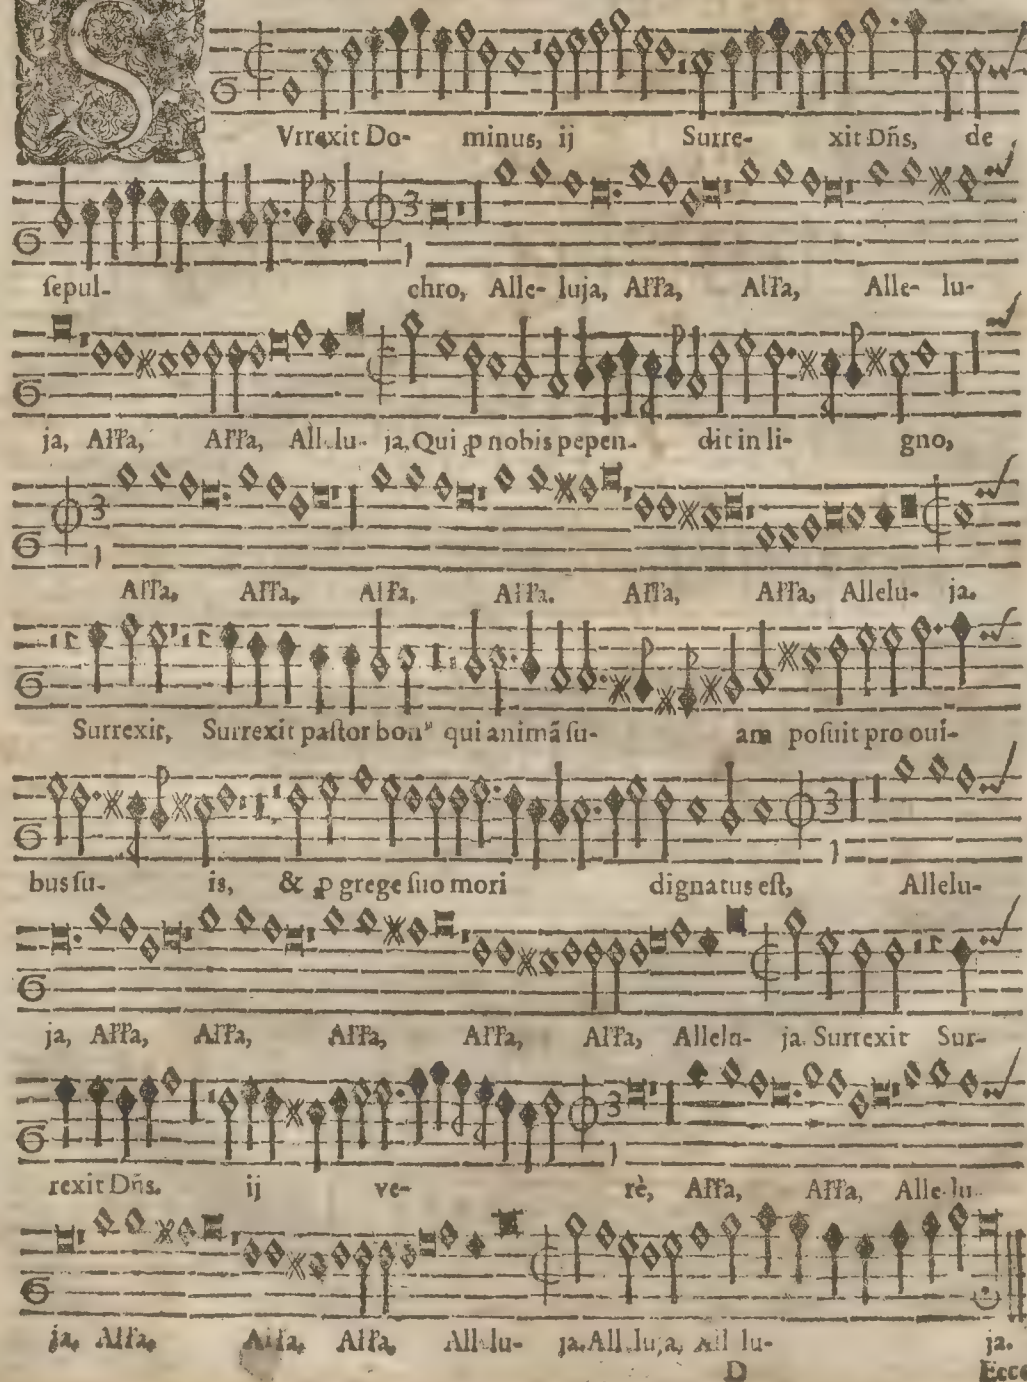 S
Vrrexit Do- minus, ij Surre- xit Dñs, de
ſepul- chro, Alle- luja, Aĺľa, Aĺľa, Alle- lu-
ja, Aĺľa, Aĺľa, Allelu- ja, Qui ꝓ nobis pepen- dit in li- gno,
Aĺľa, Aĺľa, Aĺľa, Aĺľa. Aĺľa, Aĺľa, Allelu- ja.
Surrexit, Surrexit paſtor bonꝰ qui animã ſu- am poſuit pro oui-
bus ſu- is, & ꝓ grege ſuo mori dignatus eſt, Allelu-
ja, Aĺľa, Aĺľa, Aĺľa, Aĺľa, Aĺľa, Allelu- ja. Surrexit Sur-
rexit Dñs. ij ve- rè, Aĺľa, Aĺľa, Alle-lu-
ja, Aĺľa, Aĺľa, Aĺľa, Allelu- ja. Alleluja, Allelu- ja.
D Ecce